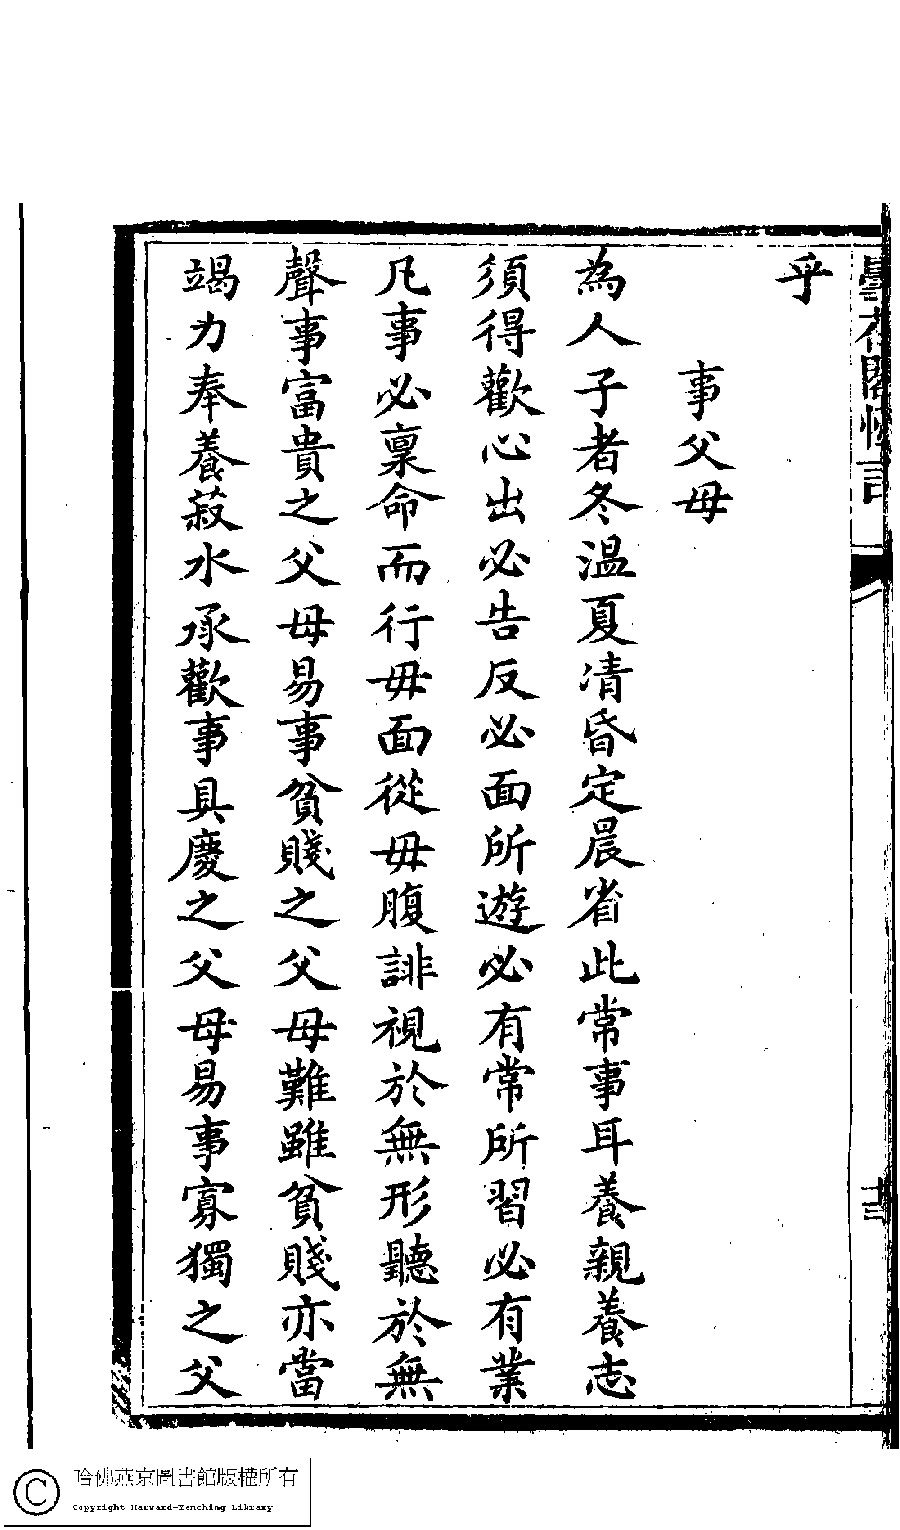 乎
事父母
為人子者冬溫夏凊昏定晨省此常事耳養親養志
須得歡心出必告反必面所遊必有常所習必有業
凡事必稟命而行毋面從毋腹誹視於無形聽於無
聲事富貴之父母易事貧賤之父母難雖貧賤亦當
竭力奉養菽水承歡事具慶之父母易事寡獨之父
哈佛燕京圖書館版權所有
Copyright Harvard-Yenching Library